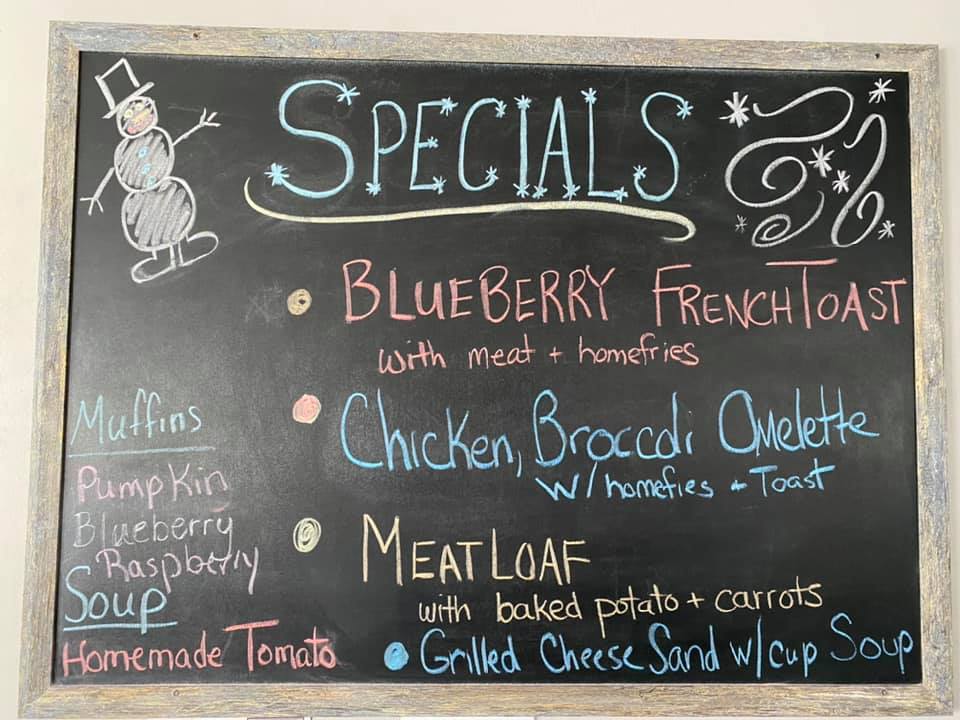 SPECIALS
BLUEBERRY FRENCH TOAST
with meat + homefries
Chicken, Broccoli Omelette
w/ homefies + Toast
MEATLOAF
with baked potato + carrots
Grilled Cheese Sand w/cup Soup
Muffins
Pumpkin
Blueberry
Raspberry
Soup
Homemade Tomato